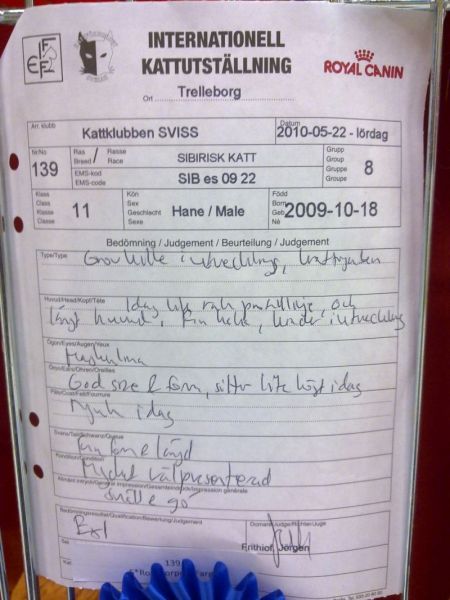 FIFe
INTERNATIONELL
KATTUTSTÄLLNING
ROYAL CANIN
Ort Trelleborg
Arr. klubb Kattklubben SVISS
Datum 2010-05-22 - lördag
Nr/No 139
Ras / Rasse Breed / Race SIBIRISK KATT
EMS-kod EMS-code SIB es 09 22
Grupp Group Gruppe Groupe 8
Klass Class Klasse Classe 11
Kön Sex Geschlecht Sexe Hane / Male
Född Born Geb Né 2009-10-18
Bedömning / Judgement / Beurteilung / Judgement
Type/Type
under utveckling,
Huvud/Head/Kopf/Tête Idag lite rak profillinje och
långt huvud. Fin haka, under utveckling
Ögon/Eyes/Augen/Yeux
Öron/Ears/Ohren/Oreilles
God size & form, sitter lite högt idag
Päls/Coat/Fell/Fourrure
Mjuk idag
Svans/Tail/Schwanz/Queue
längd
Kondition/Condition
Mycket välpresenterad
Allmänt intryck/General impression/Gesamteindruck/Impression générale
Snäll & go
Bedömningsresultat/Qualification/Bewertung/Judgement
Ex1
Domare/Judge/Richter/Juge
Frithiof, Jörgen
139